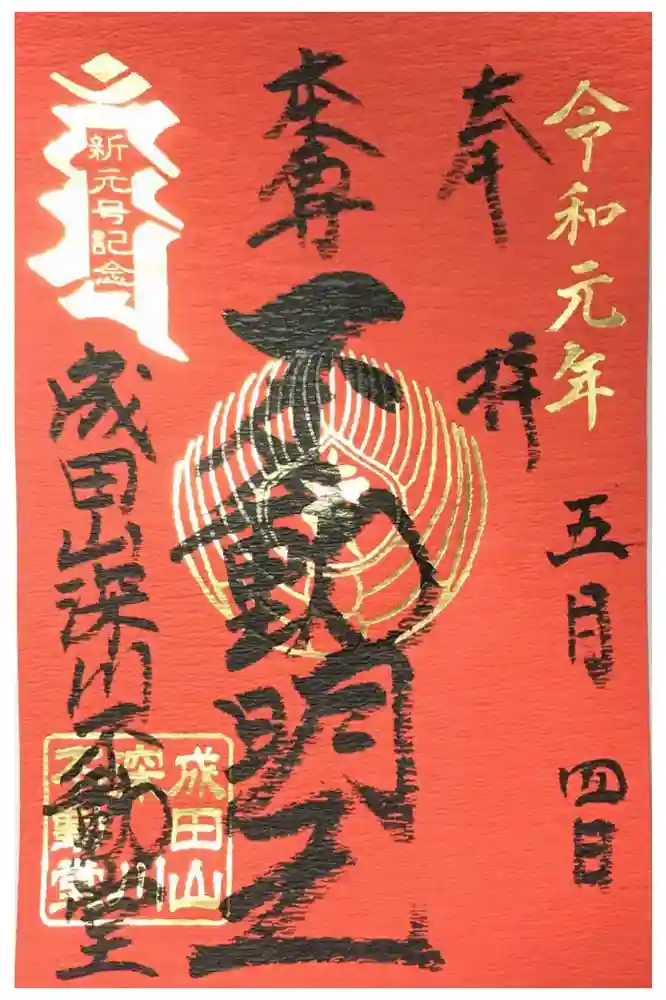 令和元年
五月 四日
奉 拝
本尊
不動明王
新元号記念
成田山深川不動堂
成田山
深川
不動堂